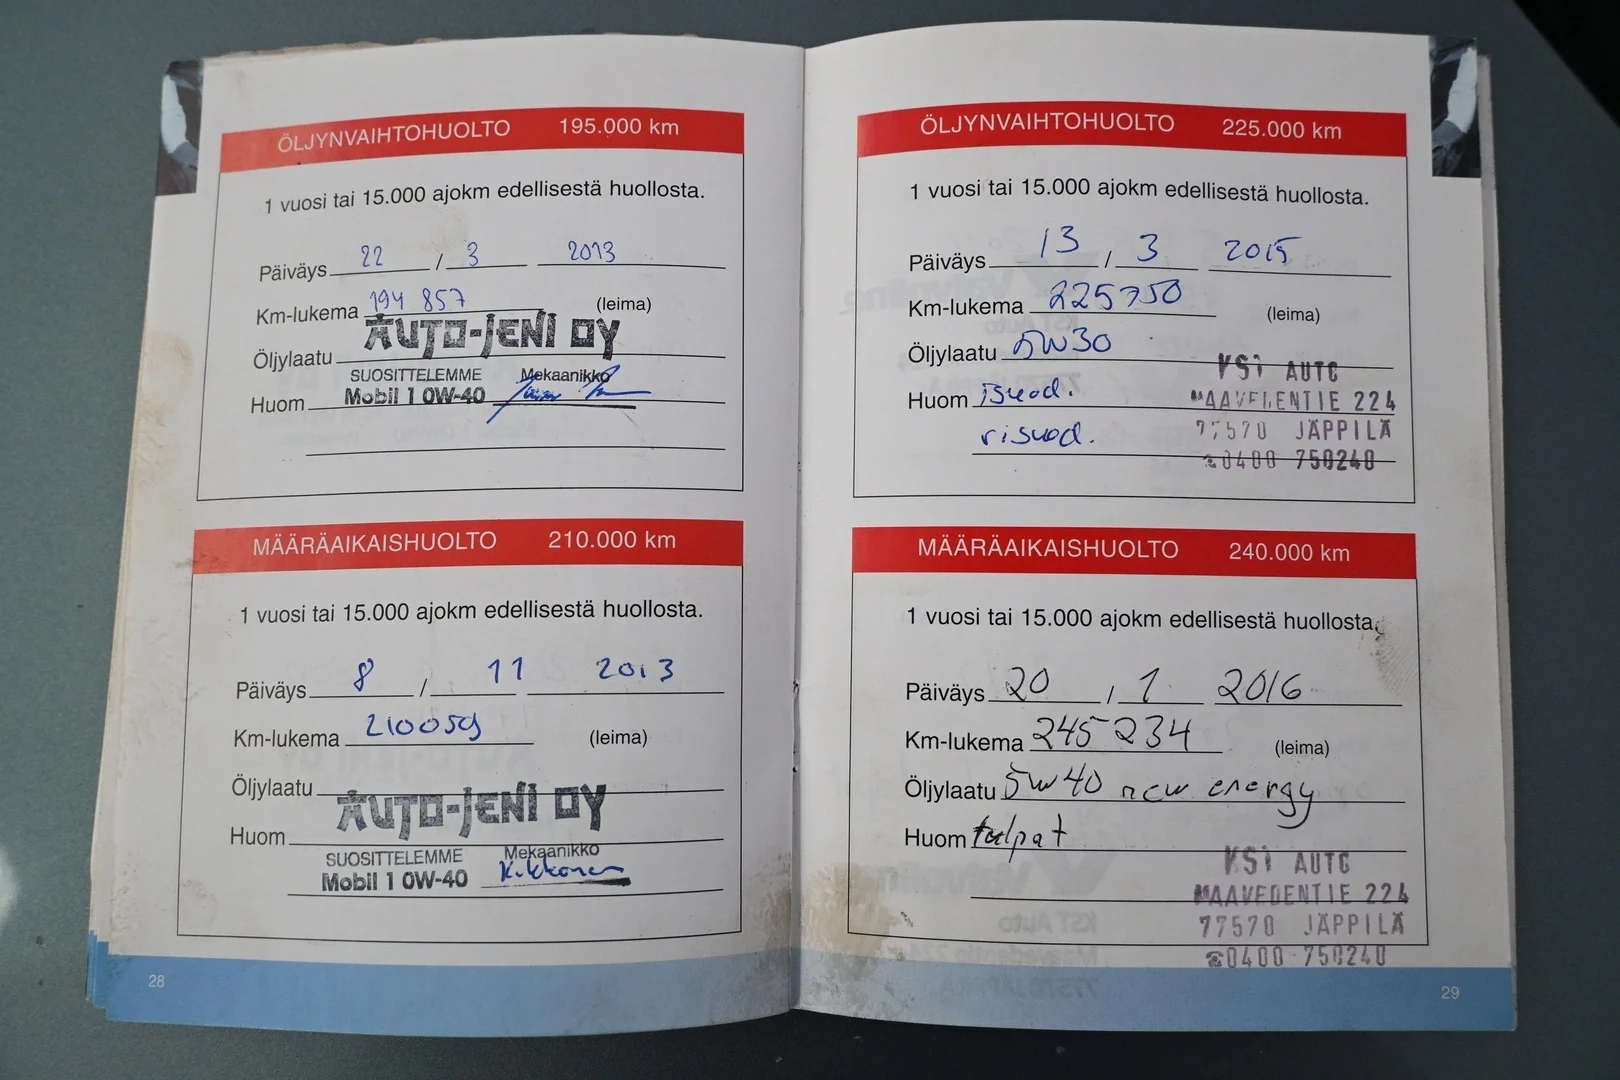 ÖLJYNVAIHTOHUOLTO 195.000 km
1 vuosi tai 15.000 ajokm edellisestä huollosta.
Päiväys 22 / 3 2013
Km-lukema 194 857 (leima)
AUTO-JENI OY
Öljylaatu
SUOSITTELEMME Mekaanikko
Huom Mobil 1 0W-40
MÄÄRÄAIKAISHUOLTO 210.000 km
1 vuosi tai 15.000 ajokm edellisestä huollosta.
Päiväys 8 / 11 2013
Km-lukema 210059 (leima)
Öljylaatu
AUTO-JENI OY
Huom
SUOSITTELEMME Mekaanikko
Mobil 1 0W-40 Kikkonen
28
ÖLJYNVAIHTOHUOLTO 225.000 km
1 vuosi tai 15.000 ajokm edellisestä huollosta.
Päiväys 13 / 3 2015
Km-lukema 225750 (leima)
Öljylaatu 5W30
KSI AUTO
Huom Bsuod.
MAAVEDENTIE 224
risuod.
77570 JÄPPILÄ
☎0400 750240
MÄÄRÄAIKAISHUOLTO 240.000 km
1 vuosi tai 15.000 ajokm edellisestä huollosta.
Päiväys 20 / 1 2016
Km-lukema 245 234 (leima)
Öljylaatu 5W40 new energy
Huom tulpat
KSI AUTO
MAAVEDENTIE 224
77570 JÄPPILÄ
☎0400 750240
29